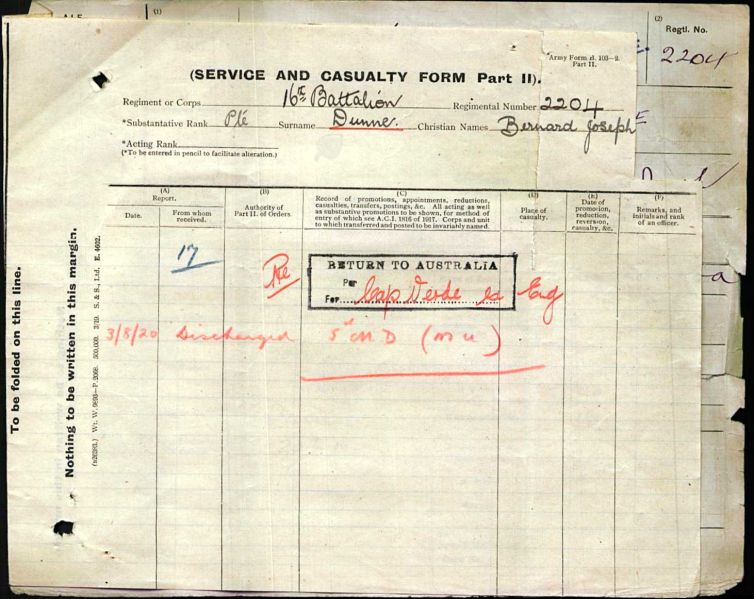 (1)
(2)
Regtl. No.
2204
Army Form B. 103—2.
Part II.
(SERVICE AND CASUALTY FORM Part II).
Regiment or Corps 16th Battalion Regimental Number 2204
*Substantative Rank Pte Surname Dunne. Christian Names Bernard Joseph
*Acting Rank
(*To be entered in pencil to facilitate alteration.)
(A)
Report.
Date.
From whom received.
(B)
Authority of Part II. of Orders.
(C)
Record of promotions, appointments, reductions,
casualties, transfers, postings, &c. All acting as well
as substantive promotions to be shown, for method of
entry of which see A.C.I. 1816 of 1917. Corps and unit
to which transferred and posted to be invariably named.
(D)
Place of casualty.
(E)
Date of promotion, reduction, reversion, casualty, &c.
(F)
Remarks, and initials and rank of an officer.
17
Pte
RETURN TO AUSTRALIA
Per
For
Cap Verde ex Eng
3/8/20 Discharged 5th M D (M U)
To be folded on this line.
Nothing to be written in this margin.
S. & S., Ltd. E. 4602.